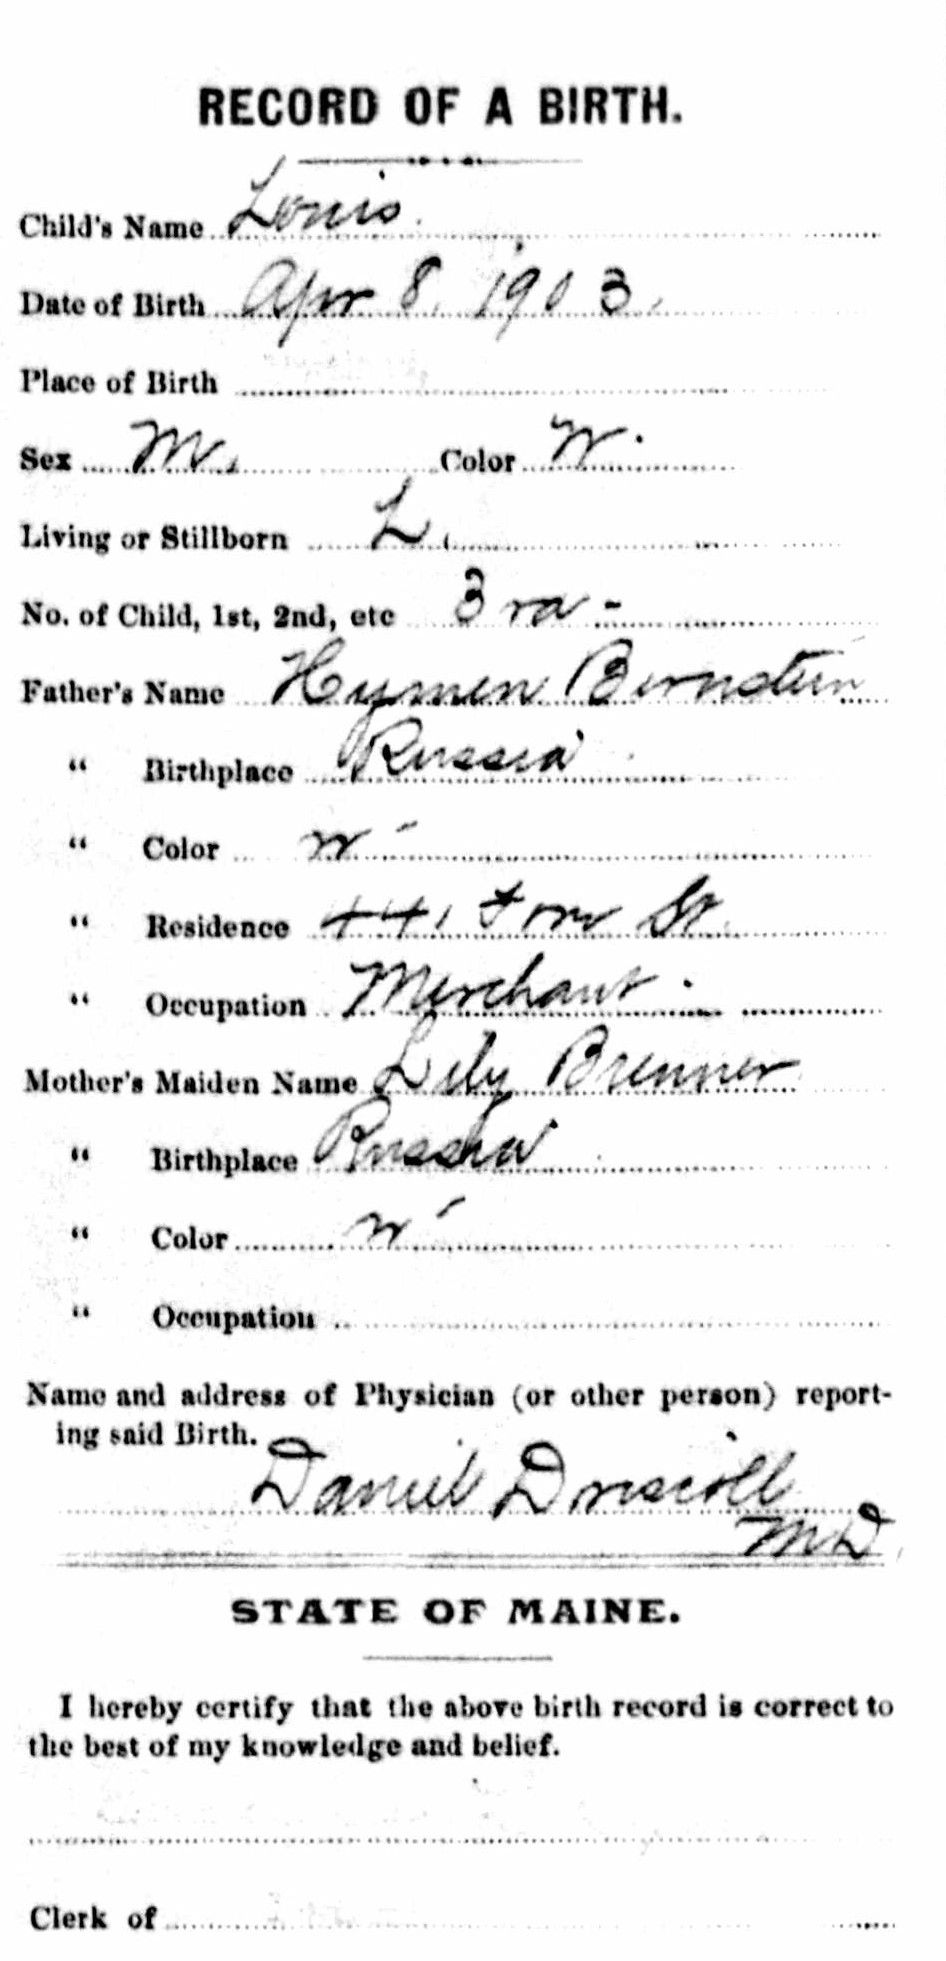 RECORD OF A BIRTH.
Child's Name Louis
Date of Birth Apr 8, 1903.
Place of Birth
Sex M. Color W.
Living or Stillborn L.
No. of Child, 1st, 2nd, etc 3rd -
Father's Name Hymen Bernstein
" Birthplace Russia
" Color W
" Residence 441 Fore St.
" Occupation Merchant.
Mother's Maiden Name Lily Brenner
" Birthplace Russia
" Color W
" Occupation
Name and address of Physician (or other person) report-
ing said Birth.
Daniel Driscoll
M D.
STATE OF MAINE.
I hereby certify that the above birth record is correct to
the best of my knowledge and belief.
Clerk of